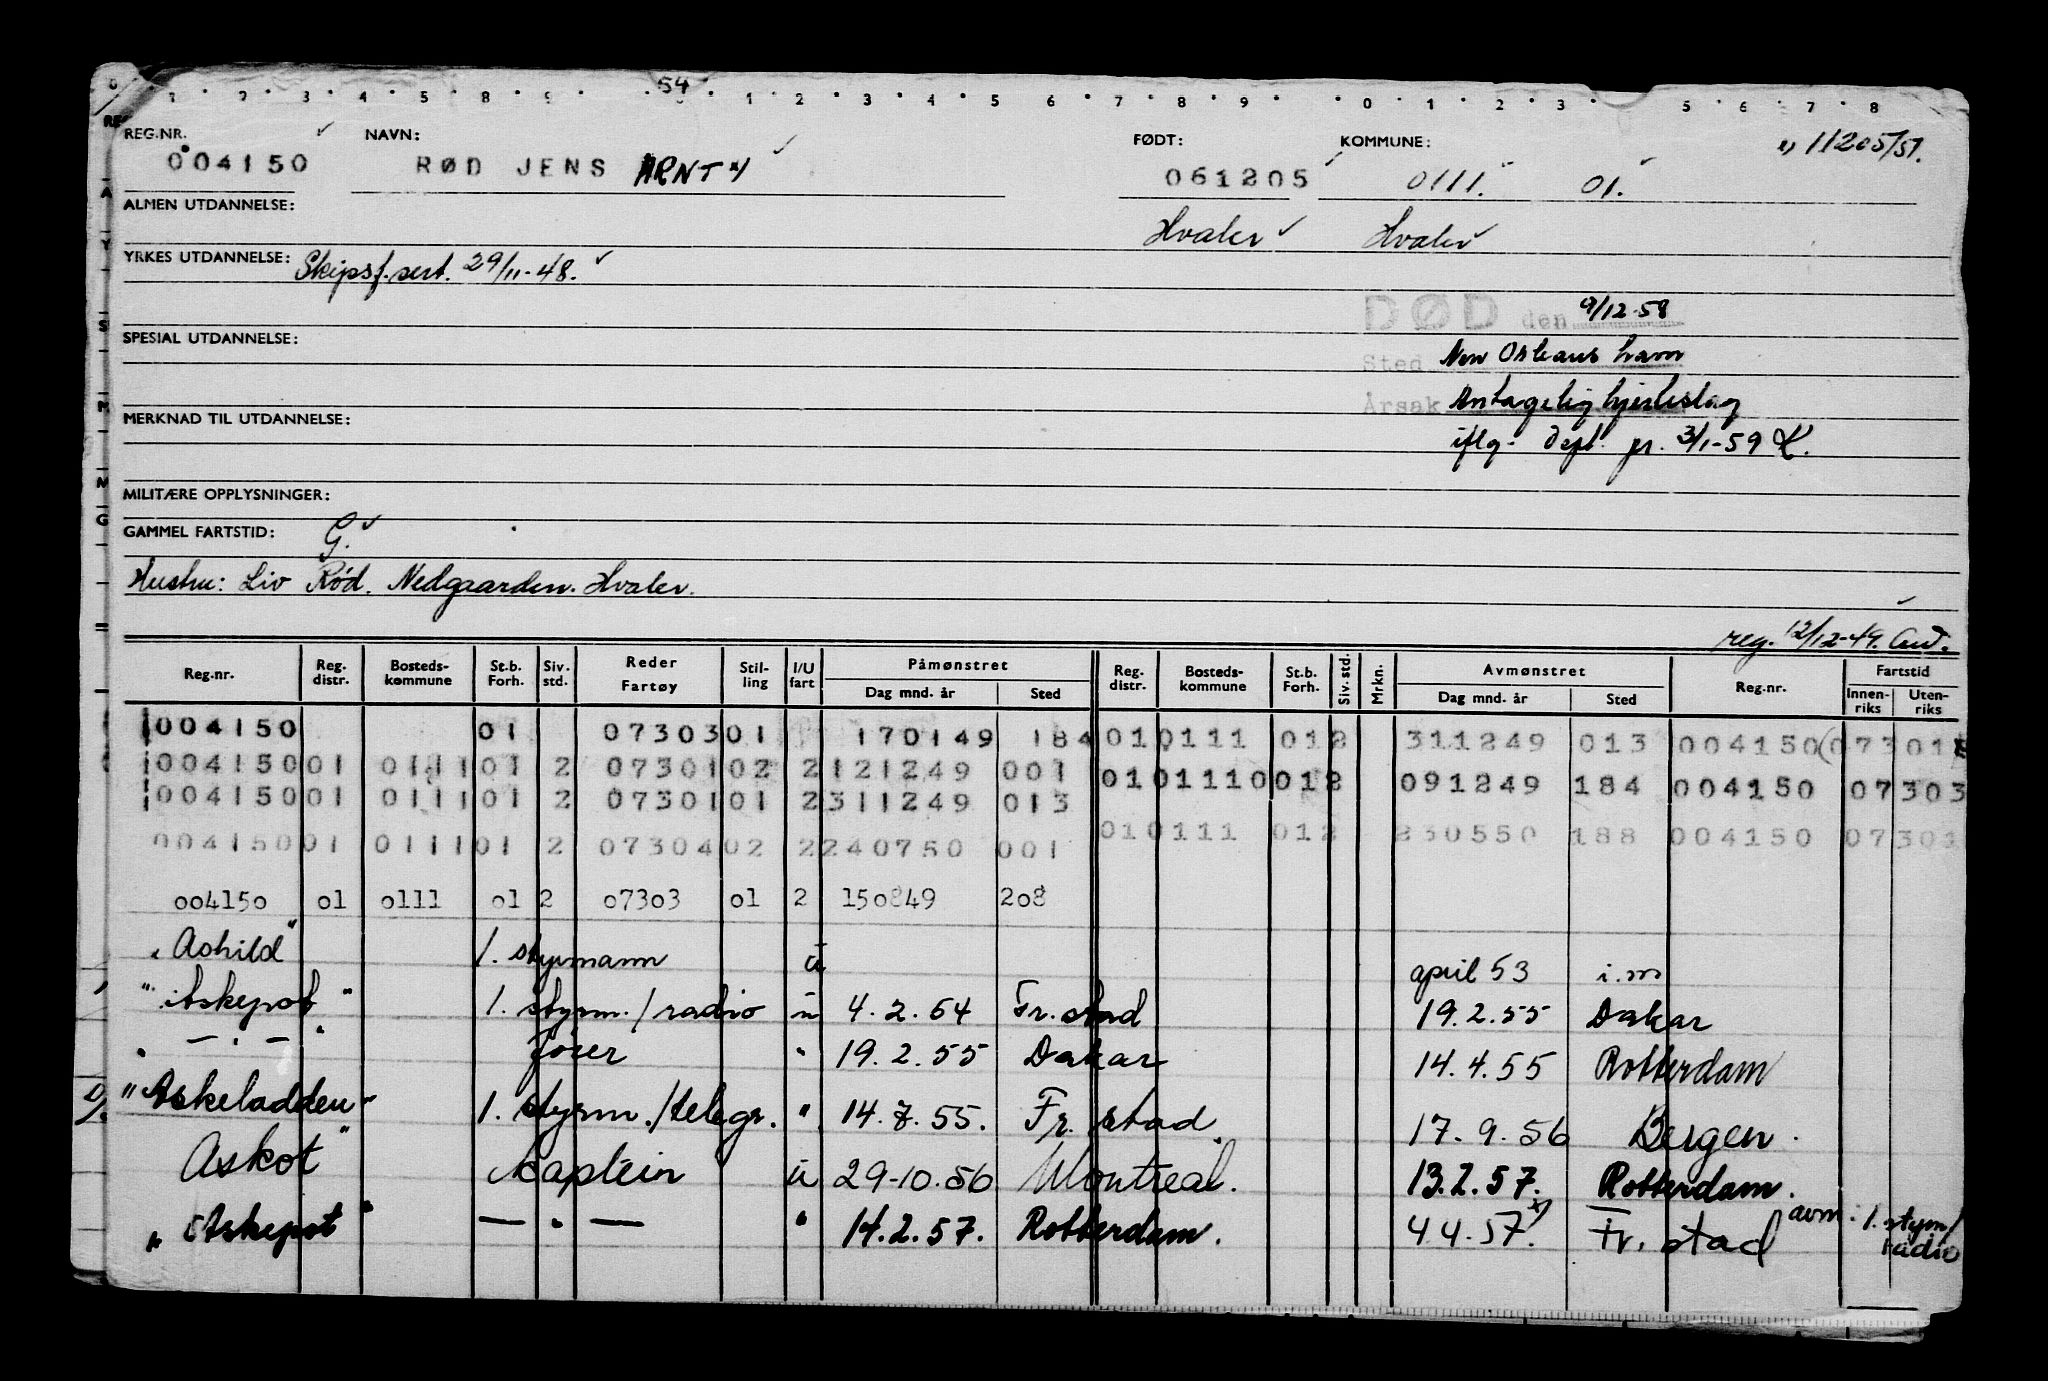 54
1 2 3 4 5 8 9 1 2 3 4 5 6 7 8 9 0 1 2 3 5 6 7 8
REG.NR. NAVN: FØDT: KOMMUNE: 1) 11205/51.
004150 RØD JENS ARNT 061205 0111. 01.
ALMEN UTDANNELSE: Hvaler Hvaler
YRKES UTDANNELSE: Skipsf. sert. 29/11-48.
DØD den 9/12-58
SPESIAL UTDANNELSE:
Sted New Orleans havn
Årsak Antagelig hjerteslag
MERKNAD TIL UTDANNELSE:
iflg. Dept. pr. 3/1-59
MILITÆRE OPPLYSNINGER:
GAMMEL FARTSTID: G.
Hustru: Liv Rød. Nedgaarden. Hvaler.
reg. 12/12-49.
Reg.nr. Reg. distr. Bosteds-kommune St.b. Forh. Siv. std. Reder Fartøy Stil-ling I/U fart Påmønstret Dag mnd. år Sted Reg. distr. Bosteds-kommune St.b. Forh. Siv. std. Mrkn. Avmønstret Dag mnd. år Sted Reg.nr. Fartstid Innen-riks Uten-riks
004150 01 07303 01 170149 184 01 0111 01 2 311249 013 004150 07301
004150 01 0111 01 2 07301 02 2 121249 001 01 01110 01 2 091249 184 004150 07303
004150 01 0111 01 2 07301 01 2 311249 013
004150 01 0111 01 2 07304 02 2 240750 001 01 0111 01 2 230550 188 004150 07301
004150 01 0111 01 2 07303 01 2 150849 208
"Ashild" 1. styrmann u april 53 i.m
"Askepot" 1. styrm./radio u 4.2.54 Fr.stad 19.2.55 Dakar
" — . — " fører " 19.2.55 Dakar 14.4.55 Rotterdam
"Askeladden" 1. styrm./telegr. " 14.7.55. Fr.stad. 17.9.56 Bergen.
Askot" Kaptein u 29-10.56 Montreal. 13.2.57. Rotterdam.
"Askepot" — " — " 14.2.57. Rotterdam. 4 4.57. x) Fr.stad avm. 1. styrm/
radio